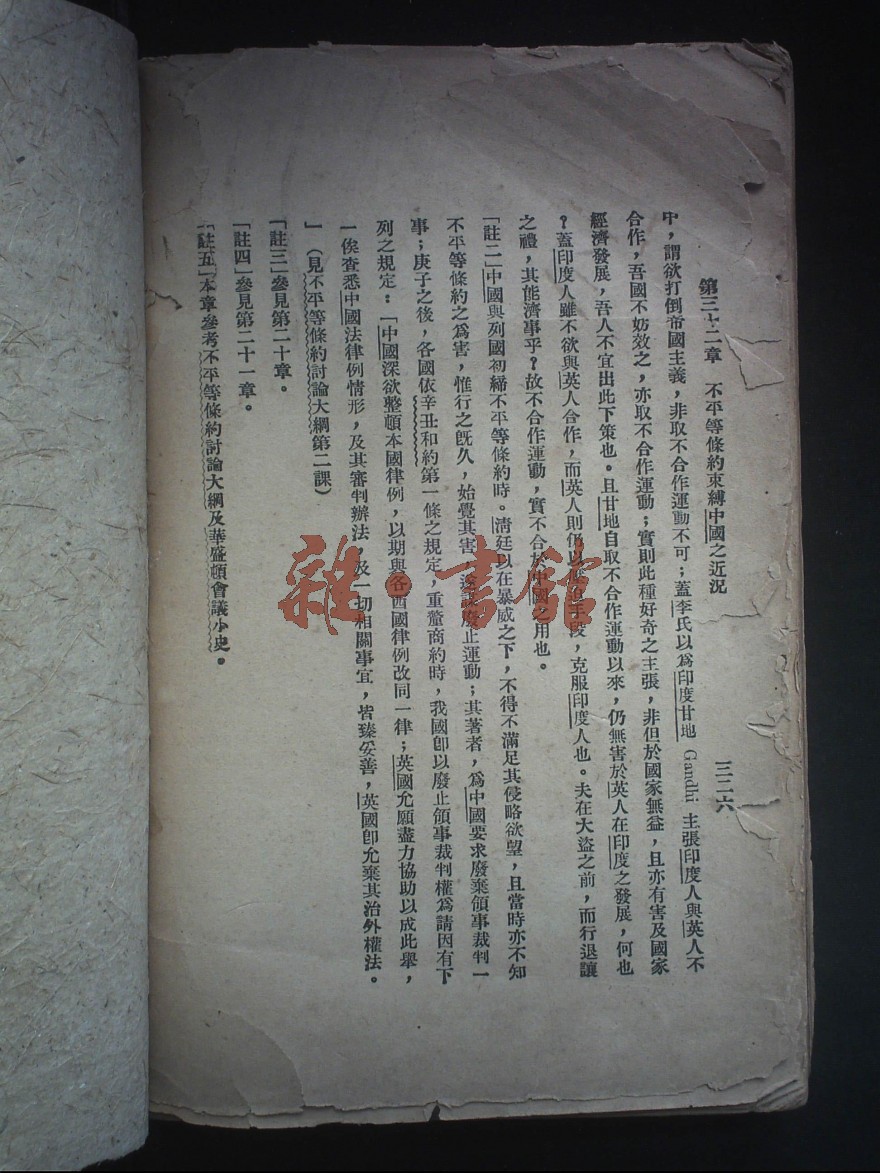 第三十二章　不平等條約束縛中國之近況　三二六
中，謂欲打倒帝國主義，非取不合作運動不可；蓋李氏以爲印度甘地 Gandhi 主張印度人與英人不
合作，吾國不妨效之，亦取不合作運動；實則此種好奇之主張，非但於國家無益，且亦有害及國家
經濟發展，吾人不宜出此下策也。且甘地自取不合作運動以來，仍無害於英人在印度之發展，何也
？蓋印度人雖不欲與英人合作，而英人則仍以手段，克服印度人也。夫在大盜之前，而行退讓
之禮，其能濟事乎？故不合作運動，實不合於中國之用也。
「註二」中國與列國初締不平等條約時。清廷以在暴威之下，不得不滿足其侵略欲望，且當時亦不知
不平等條約之爲害，惟行之旣久，始覺其害，廢止運動；其著者，爲中國要求廢棄領事裁判一
事；庚子之後，各國依辛丑和約第一條之規定，重釐商約時，我國卽以廢止領事裁判權爲請因有下
列之規定：「中國深欲整頓本國律例，以期與各西國律例改同一律；英國允願盡力協助以成此舉，
一俟查悉中國法律例情形，及其審判辦法，及一切相關事宜，皆臻妥善，英國卽允棄其治外權法。
」（見不平等條約討論大綱第二課）
「註三」參見第二十章。
「註四」參見第二十一章。
「註五」本章參考不平等條約討論大綱及華盛頓會議小史。
雜·書館